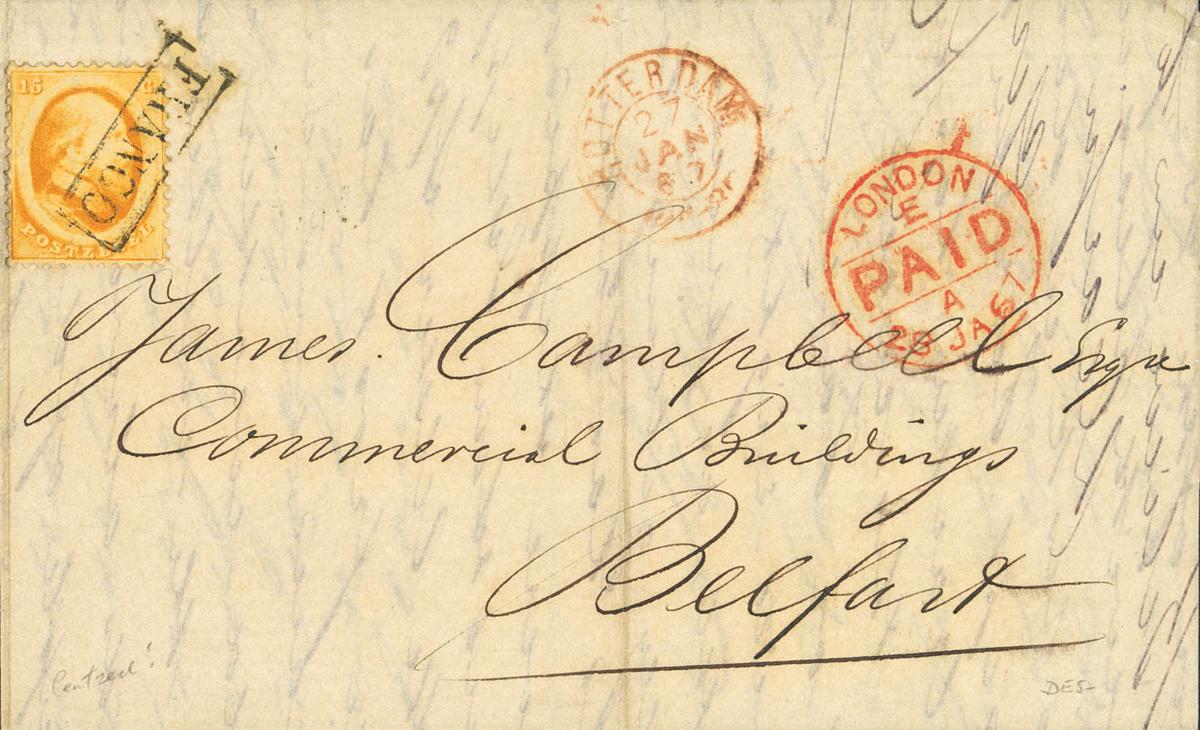 15 C
POSTZEGEL
FRANCO
ROTTERDAM
27
JAN
67
LONDON
E
PAID
A
28 JA 67
James. Campbell Esqre
Commercial Buildings
Belfast
Centred!
DES-